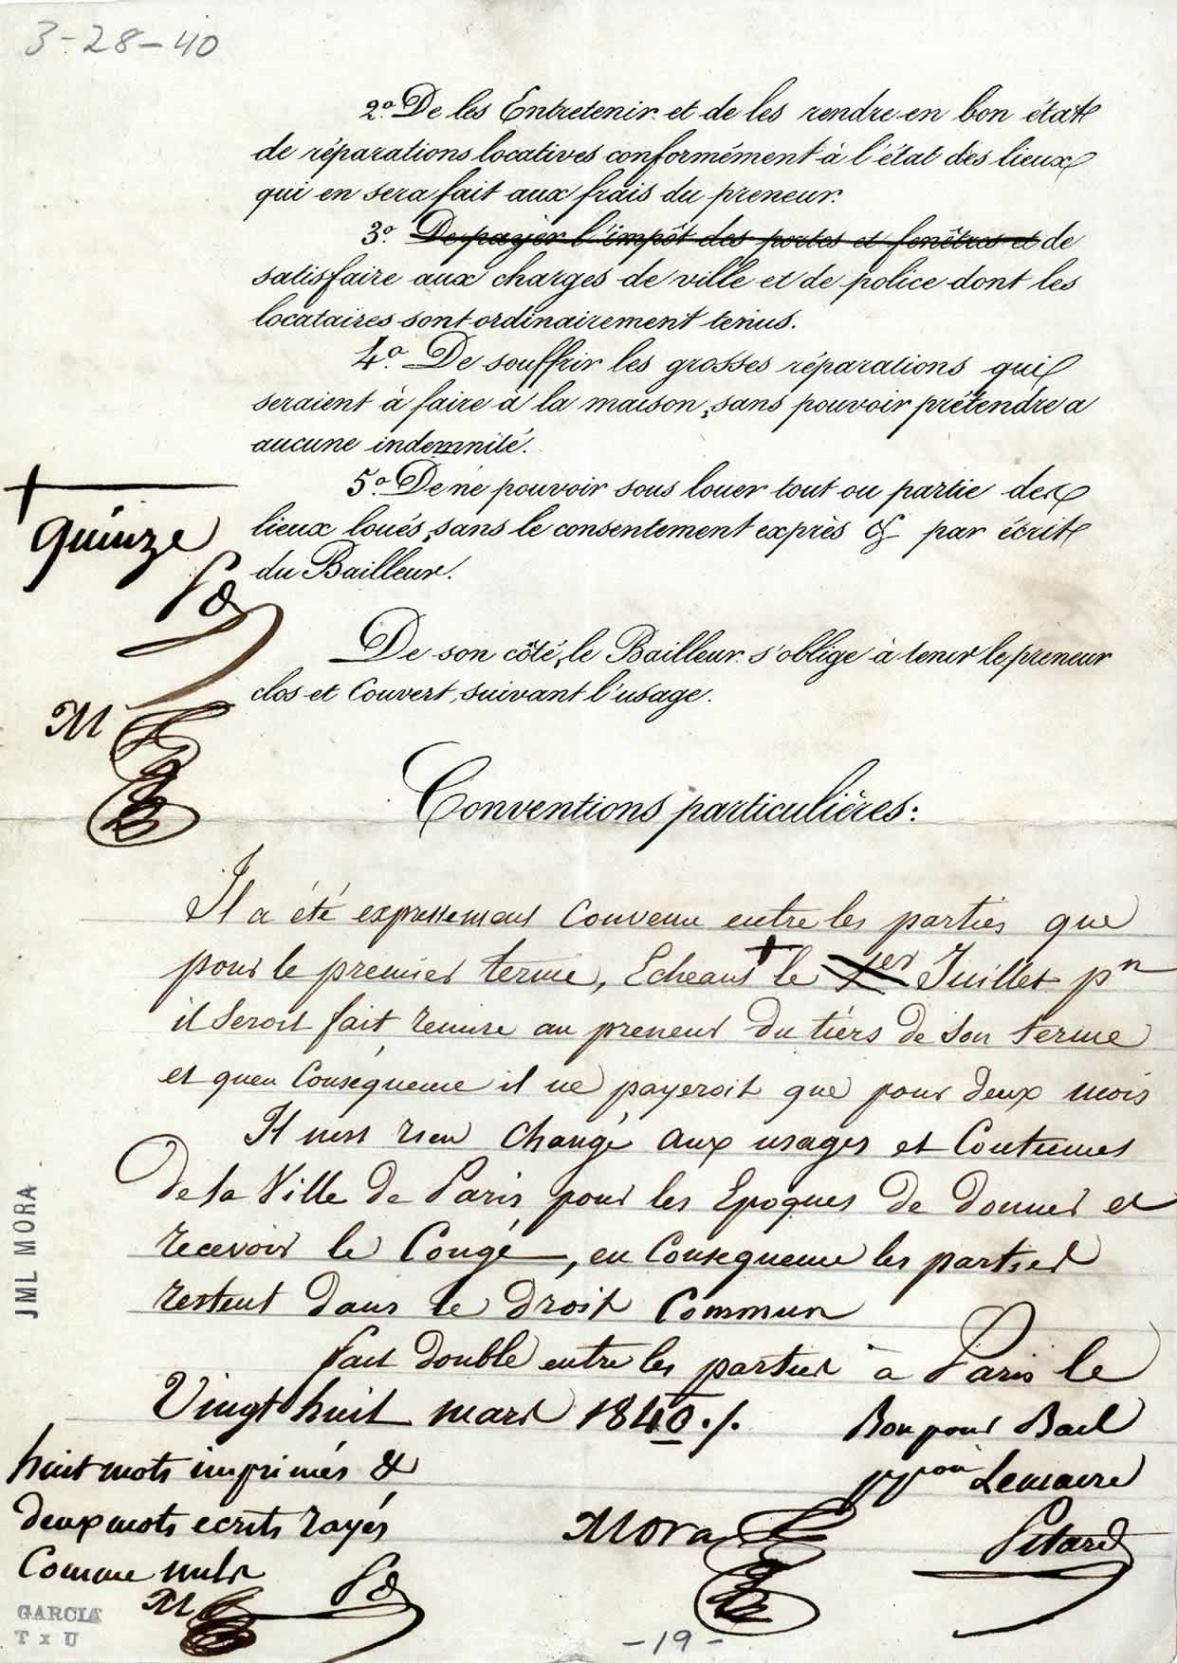 3-28-40
2º. De les Entretenir et de les rendre en bon état
de réparations locatives conformément à l'état des lieux
qui en sera fait aux frais du preneur.
3º. De payer l'impôt des portes et fenêtres et de
satisfaire aux charges de ville et de police dont les
locataires sont ordinairement tenus.
4º. De souffrir les grosses réparations qui
seraient à faire à la maison, sans pouvoir prétendre a
aucune indemnité.
5º. De ne pouvoir sous louer tout ou partie des
lieux loués, sans le consentement exprès & par écrit
du Bailleur.
+
quinze
M
De son côté, le Bailleur s'oblige à tenir le preneur
clos et Couvert, suivant l'usage.
Conventions particulières:
Il a été expressement Convenu entre les parties que
pour le premier terme, Echeant + le Juillet pn
il seroit fait remise au preneur du tiers de son terme
et quen Consequence il ne payeroit que pour deux mois
Il nest rien Changé aux usages et Coutumes
De la Ville de Paris pour les Epoques de donner et
recevoir le Congé, en Consequence les parties
restent dans le droit Commun
fait double entre les parties à Paris le
Vingt huit mars 1840 ./.
Bon pour Bail
Lemaire
Pitard
Mora
huit mots imprimés &
deux mots ecrits rayés
Comme nuls
M
JML MORA
GARCIA
T x U
-19-